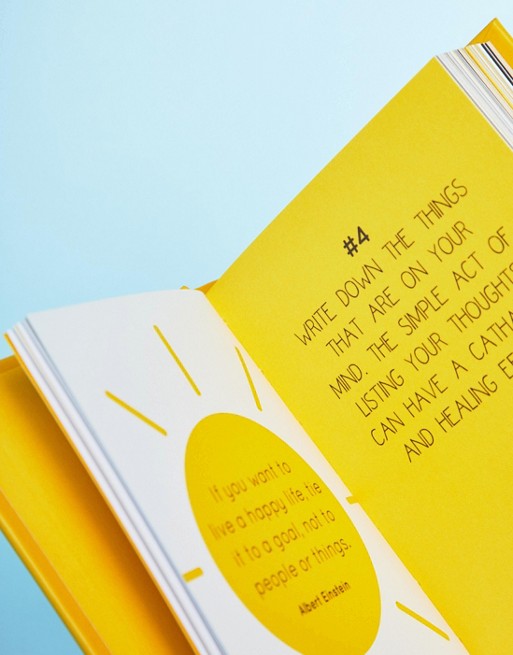 If you want to
live a happy life, tie
it to a goal, not to
people or things.
Albert Einstein
#4
WRITE DOWN THE THINGS
THAT ARE ON YOUR
MIND. THE SIMPLE ACT OF
LISTING YOUR THOUGHTS
CAN HAVE A
AND HEALING